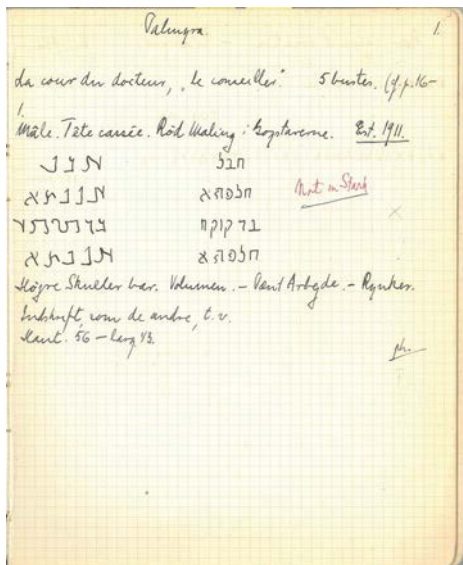 Palmyra. 1.
La cour du docteur, "le conseiller". 5 bustes. (cf. p. 16-
1.
Mâle. Tête cassée. Rød Maling i Bogstaverne. Est. 1911.
חבל
חלפתא Not in Stark
בר קוקח
חלפתא
Højre Skulder bar. Volumen. – Pænt Arbejde. – Rynker.
Indskrift, som de andre, t.v.
Haut. 56 – larg. 43.
ph.